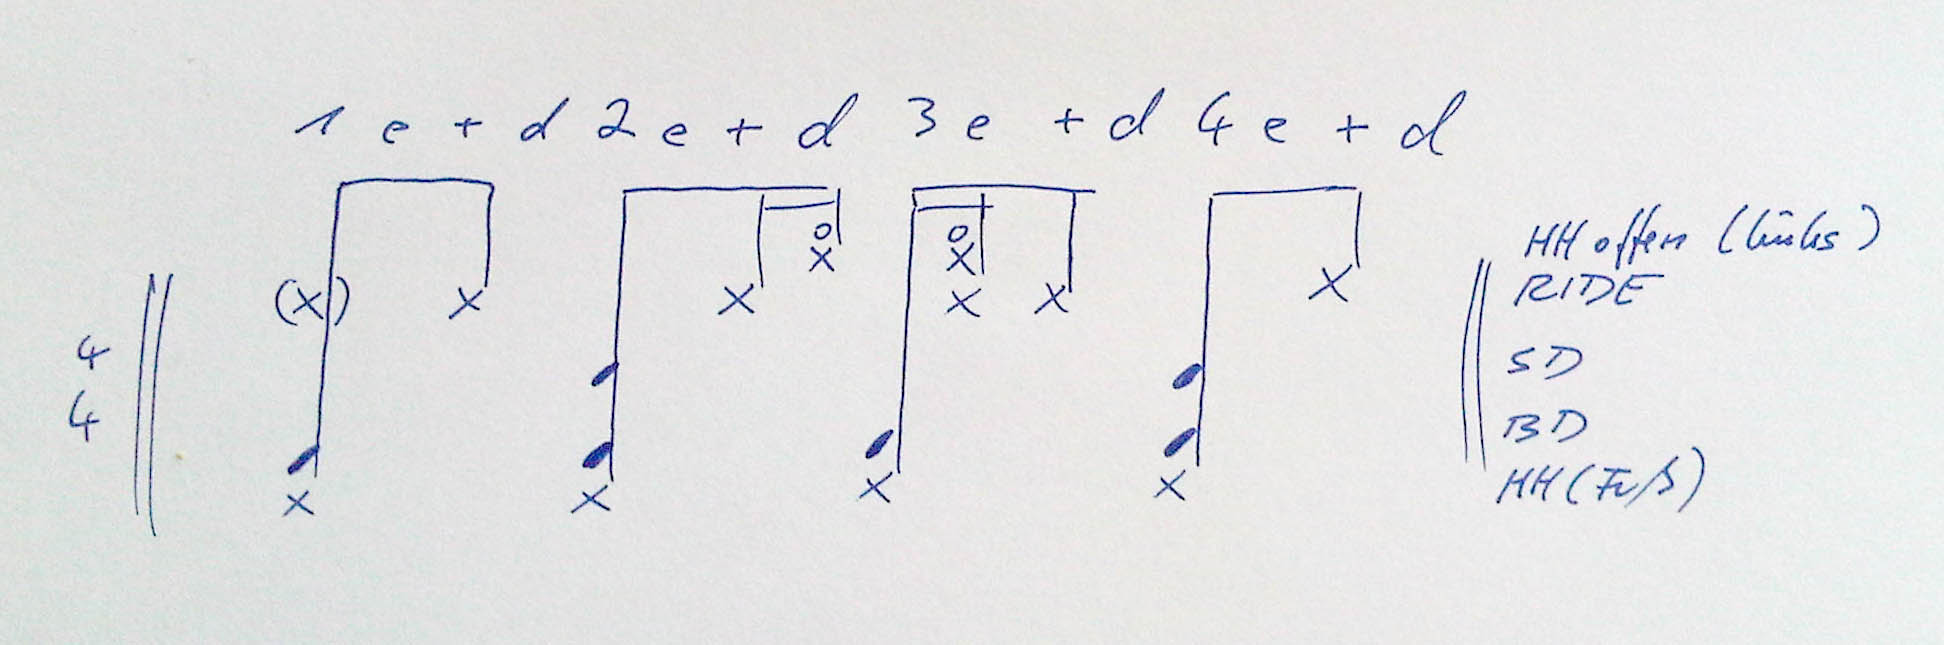 1 e + d 2 e + d 3 e + d 4 e + d
HH offen (links)
RIDE
4
4
SD
BD
HH (Fuß)